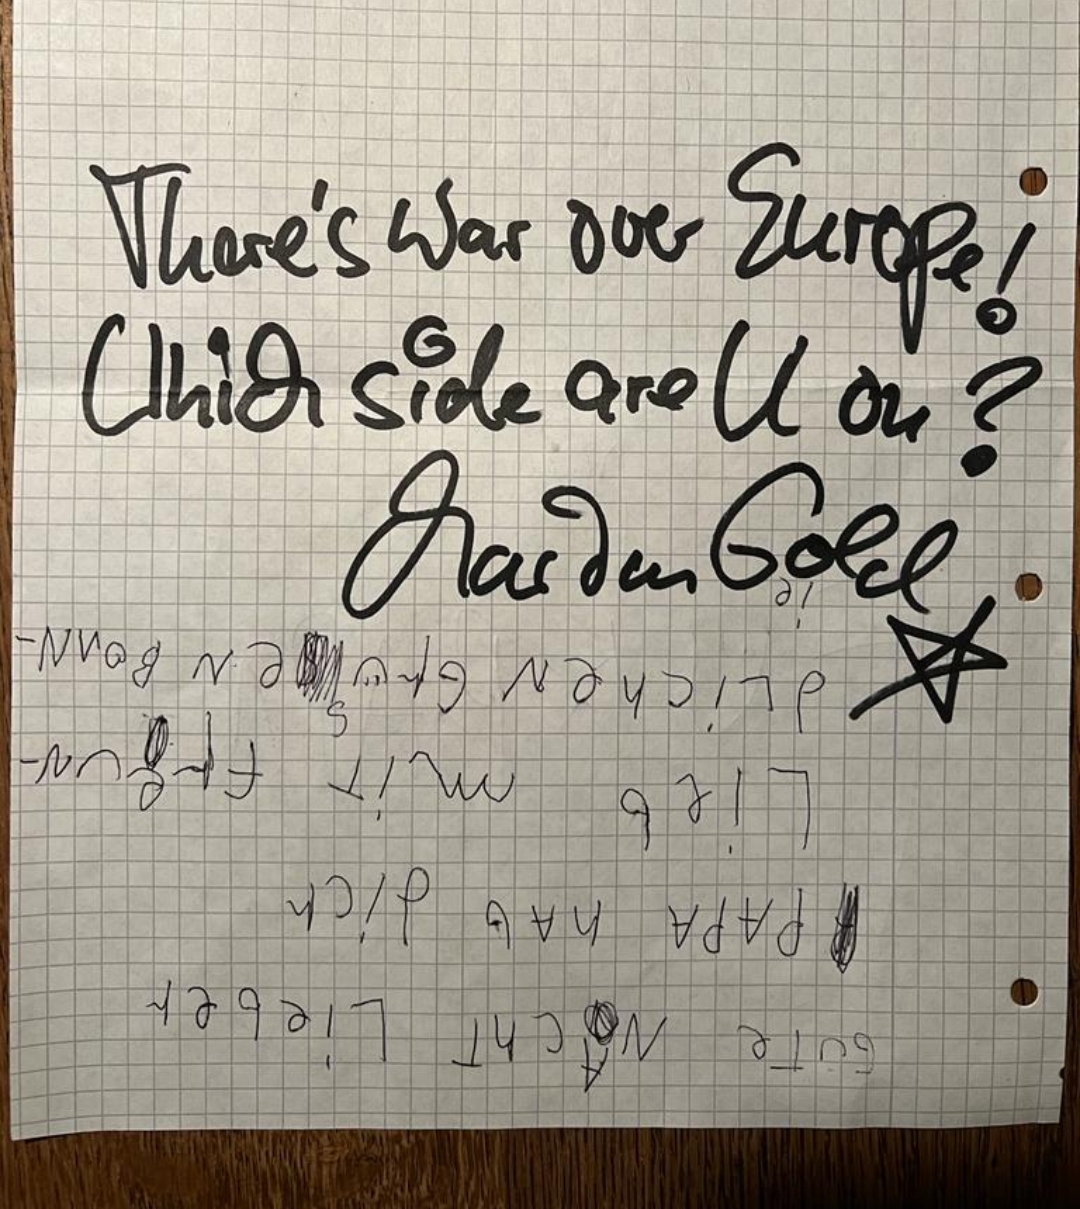 There's War over Europe!
Which side are U on?
Gold
GuTe NAchT Lieber
PAPA hAb dich
Lieb miT FreuN-
dLicheN GruseN BonnN-
ie